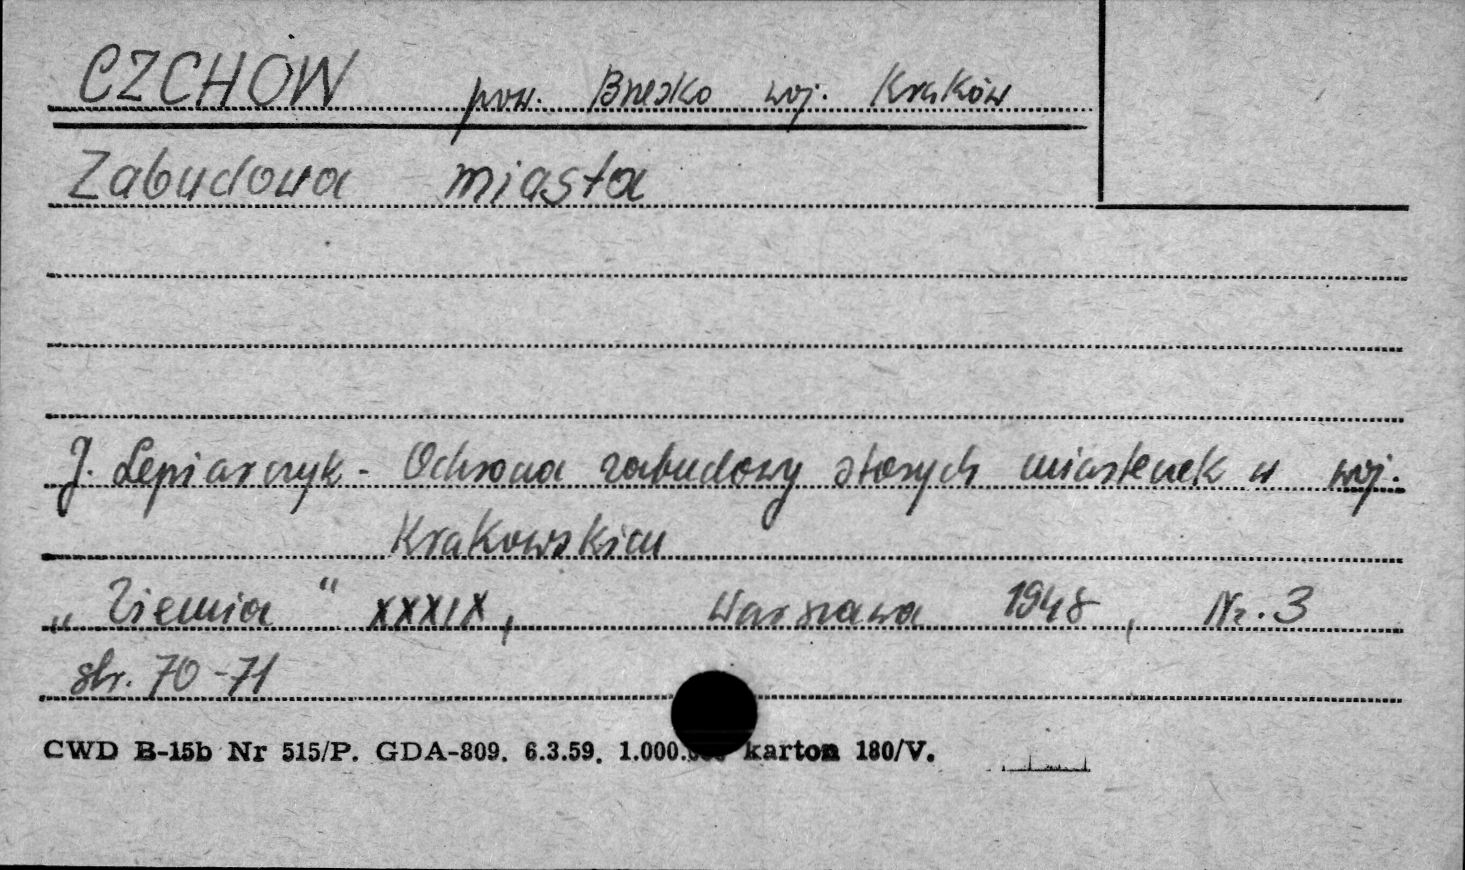 CZCHÓW pow. Brzesko woj. Kraków
Zabudowa miasta
J. Lepiarczyk - Ochrona zabudowy starych miasteczek w woj.
Krakowskim
„Ziemia“ XXXIX, Warszawa 1948, Nr. 3
str. 70-71
CWD B-15b Nr 515/P. GDA-809. 6.3.59. 1.000. karton 180/V.